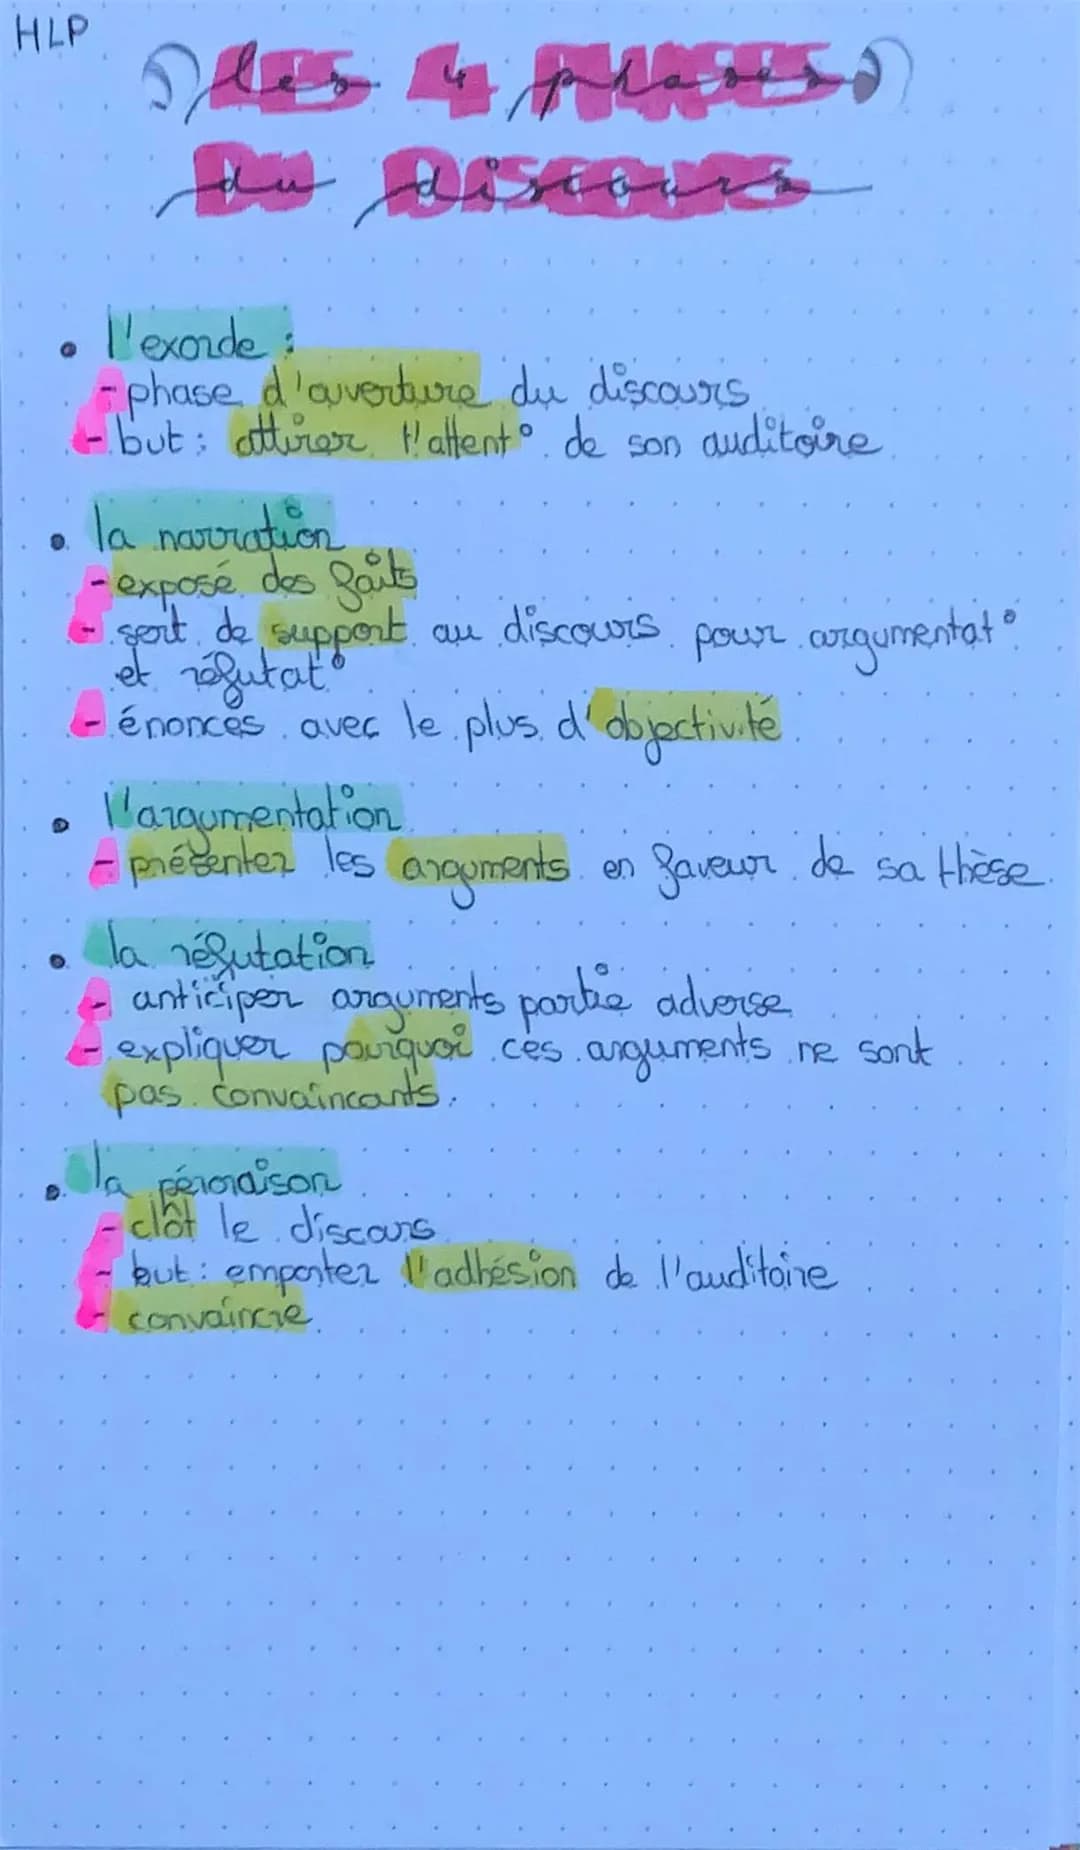 HLP
les 4 phases
du discours
l'exorde :
- phase d'ouverture du discours
- but : attirer l'attent° de son auditoire
la narration
- exposé des faits
- sert de support au discours pour argumentat°
et réfutat°
- énoncés avec le plus d'objectivité
l'argumentation
- présenter les arguments en faveur de sa thèse.
la réfutation
- anticiper arguments partie adverse
- expliquer pourquoi ces arguments ne sont
pas convaincants.
la péroraison
- clôt le discours
- but : emporter l'adhésion de l'auditoire
- convaincre